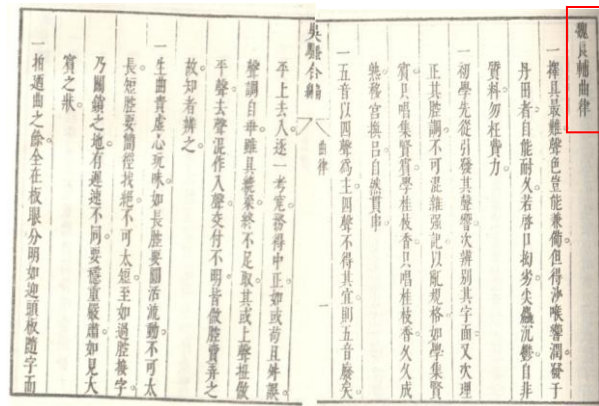 魏良輔曲律
一擇具最難聲色豈能兼備但得沙喉響潤發于
丹田者自能耐久若啓口拗劣尖麤沉鬱自非
質料勿枉費力
一初學先從引發其聲響次辨別其字面又次理
正其腔調不可混雜强記以亂規格如學集賢
賓只唱集賢賓學桂枝香只唱桂枝香久久成
熟移宮換呂自然貫串
一五音以四聲爲主四聲不得其宜則五音廢矣
吳騷合編
曲律
一
平上去入逐一考究務得中正如或苟且舛誤
聲調自乖雖具繞梁終不足取其或上聲扭做
平聲去聲混作入聲交付不明皆做腔賣弄之
故知者辨之
一生曲貴虛心玩味如長腔要圓活流動不可太
長短腔要簡徑找絕不可太短至如過腔接字
乃關鎖之地有遲速不同要穩重嚴肅如見大
賓之狀
一拍迺曲之餘全在板眼分明如迎頭板隨字而